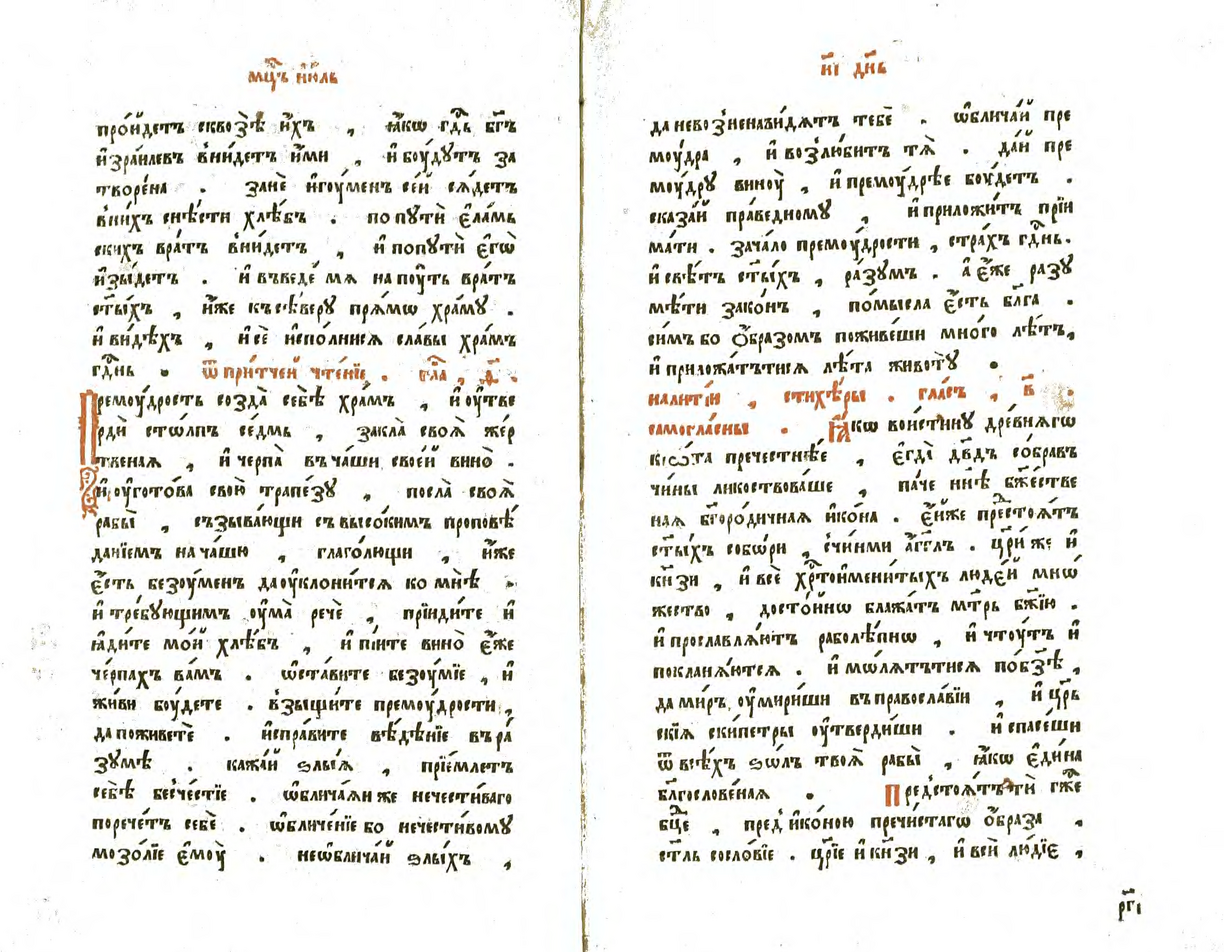 мцⷭ҇ъ и҆ю҆́ль
про́йдетъ сквозѣ̀ и҆́хъ , ꙗ҆́кѡ гдⷭ҇ь бг҃ъ
и҆зра́илевъ вни́детъ и҆́ми , и҆ бꙋ́дꙋтъ за
творе́на . занѐ и҆гꙋ́менъ се́й сѧ́детъ
вни́хъ снѣ́сти хлѣ́бъ . по пꙋтѝ є҆ла́мь
скихъ вра́тъ вни́детъ , и҆ попꙋтѝ є҆гѡ̀
и҆зы́детъ . и҆ въведе́ мѧ на пꙋ́ть вра́тъ
ст҃ы́хъ , и҆́же къ сѣ́верꙋ прѧ́мѡ хра́мꙋ .
и҆ ви́дѣхъ , и҆ сѐ и҆спо́лнисѧ сла́вы хра́мъ
гдⷭ҇нь . ѿ при́тчей чте́нїе . гла , д҃ .
Премꙋ́дрость созда̀ себѣ̀ хра́мъ , и҆ ᲂу҆тве
рдѝ сто́лпъ се́дмь , закла̀ своѧ̑ же́р
твеная , и҆ черпа̀ въ ча́ши свое́й вино̀ .
и҆ ᲂу҆гото́ва свою̀ трапе́зꙋ , посла̀ своѧ̑
рабы̀ , съзыва́ющи съ высо́кимъ проповѣ́
данїемъ на ча́шю , глаго́лющи , и҆́же
є҆́сть безꙋ́менъ да ᲂу҆клони́тсѧ ко мнѣ̀ .
и҆ тре́бꙋющимъ ᲂу҆ма̀ речѐ , прїиди́те и҆
ꙗ҆ди́те мо́й хлѣ́бъ , и҆ пі́йте вино̀ є҆́же
че́рпахъ ва́мъ . ѡ҆ста́вите безꙋ́мїе , и҆
жи́ви бꙋ́дете . взыщи́те премꙋ́дрости ,
да поживетѐ . и҆спра́вите вѣ́дѣнїе въ ра́
зꙋмѣ . кажа́й ѕлы́ѧ , прїе́млетъ
себѣ̀ бесче́стїе . ѡ҆блича́ѧи же нечести́ваго
порече́тъ себѐ . ѡ҆бличе́нїе бо нечести́вомꙋ
мозо́лїе є҆мꙋ̀ . не ѡ҆блича́й ѕлы́хъ ,
и҃і дн҃ь
да невозненави́дѧтъ тебѐ . ѡ҆блича́й пре
мꙋ́дра , и҆ возлю́битъ тѧ̀ . да́й пре
мꙋ́дрꙋ винꙋ̀ , и҆ премꙋ́дрѣе бꙋ́детъ .
сказа́й пра́ведномꙋ , и҆ приложи́тъ прїи
ма́ти . зача́ло премꙋ́дрости , стра́хъ гдⷭ҇нь .
и҆ свѣ́тъ ст҃ы́хъ , ра́зꙋмъ . а є҆́же разꙋ
мѣ́ти зако́нъ , по́мысла є҆́сть бл҃га .
си́мъ бо ѻ҆́бразомъ поживе́ши мно́го лѣ́тъ ,
и҆ приложа́тътисѧ лѣ́та животꙋ̀ .
на литі́и , стихѣ́ры . гла́съ , в҃ .
самогла́сны . Ꙗ҆́кѡ вои́стинꙋ дре́внѧгѡ
пречестнѣ́е , є҆гда̀ дв҃дъ со́бравъ
чи́ны ликоствова́ше , па́че нн҃ѣ бжⷭ҇тве
ная бг҃оро́дичная и҆ко́на . є҆́йже престоѧ́тъ
ст҃ы́хъ собо́ри , с чи́нми а҆́гг҃лъ . цр҃и же и҆
кн҃зи , и҆ всѐ хрⷭ҇тои҆мени́тыхъ люде́й мно́
жество , досто́йнѡ блажа́тъ мт҃рь бж҃їю .
и҆ прославлѧ́ютъ раболѣ́пнѡ , и҆ чтꙋ́тъ и҆
покланѧ́ютсѧ . и҆ мо́лѧтътисѧ по́бзѣ ,
да ми́ръ ᲂу҆мири́ши въ правосла́вїи , и҆ цр҃ь
скїѧ ски́петры ᲂу҆тверди́ши . и҆ спасе́ши
ѿ всѣ́хъ ѕо́лъ твоѧ̑ рабы̀ , ꙗ҆́кѡ є҆ди́на
бл҃гослове́ная . Предстоѧ́тътѝ гж҃е
бц҃е , пред и҆ко́ною пречи́стагѡ ѻ҆́браза ,
ст҃ль сосло́вїе . цр҃їе и҆ кн҃зи , и҆ всѝ лю́дїе ,
рг҃і